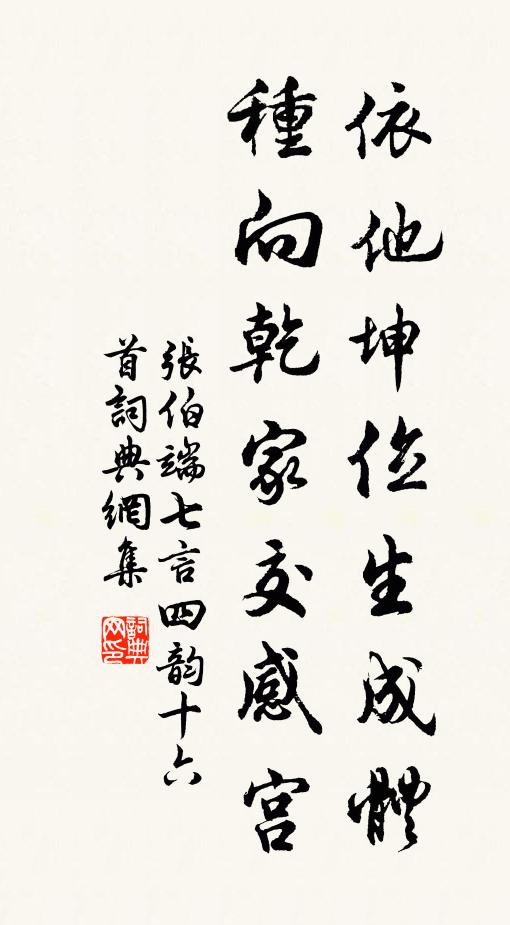 依他坤位生成體
種向乾家交感宮
張伯端七言四韵十六
首詞典網集
詞典網印